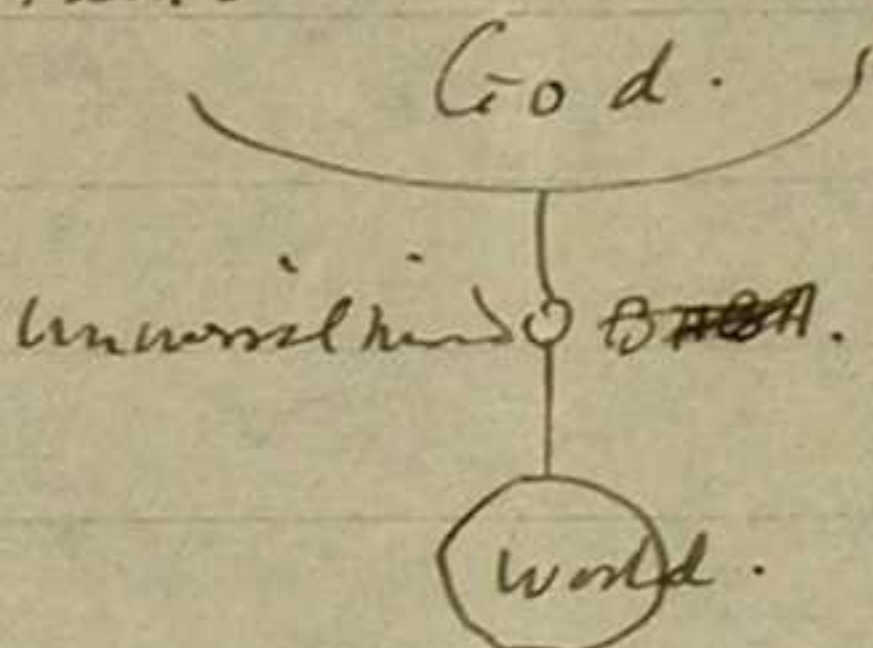 God.
Universal mind
World.